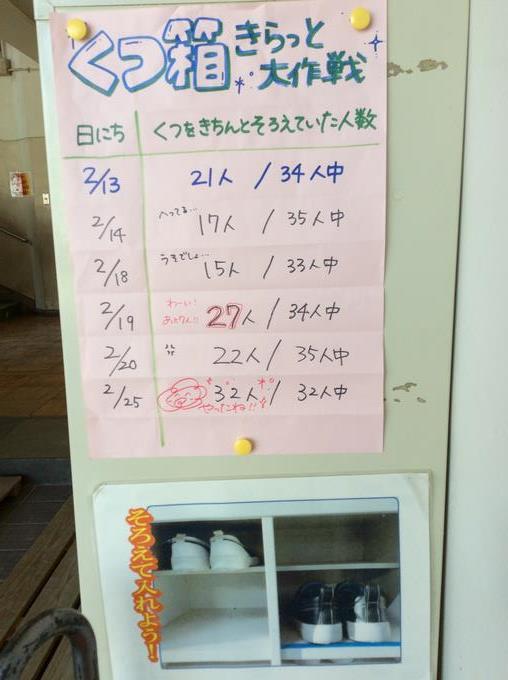 くつ箱 きらっと
大作戦
日にち くつをきちんとそろえていた人数
2/13 21人 / 34人中
2/14 へってる… 17人 / 35人中
2/18 うそでしょ… 15人 / 33人中
2/19 わーい! あと7人!! 27人 / 34人中
2/20 22人 / 35人中
2/25 32人 / 32人中
やったね!!
そろえて入れよう!